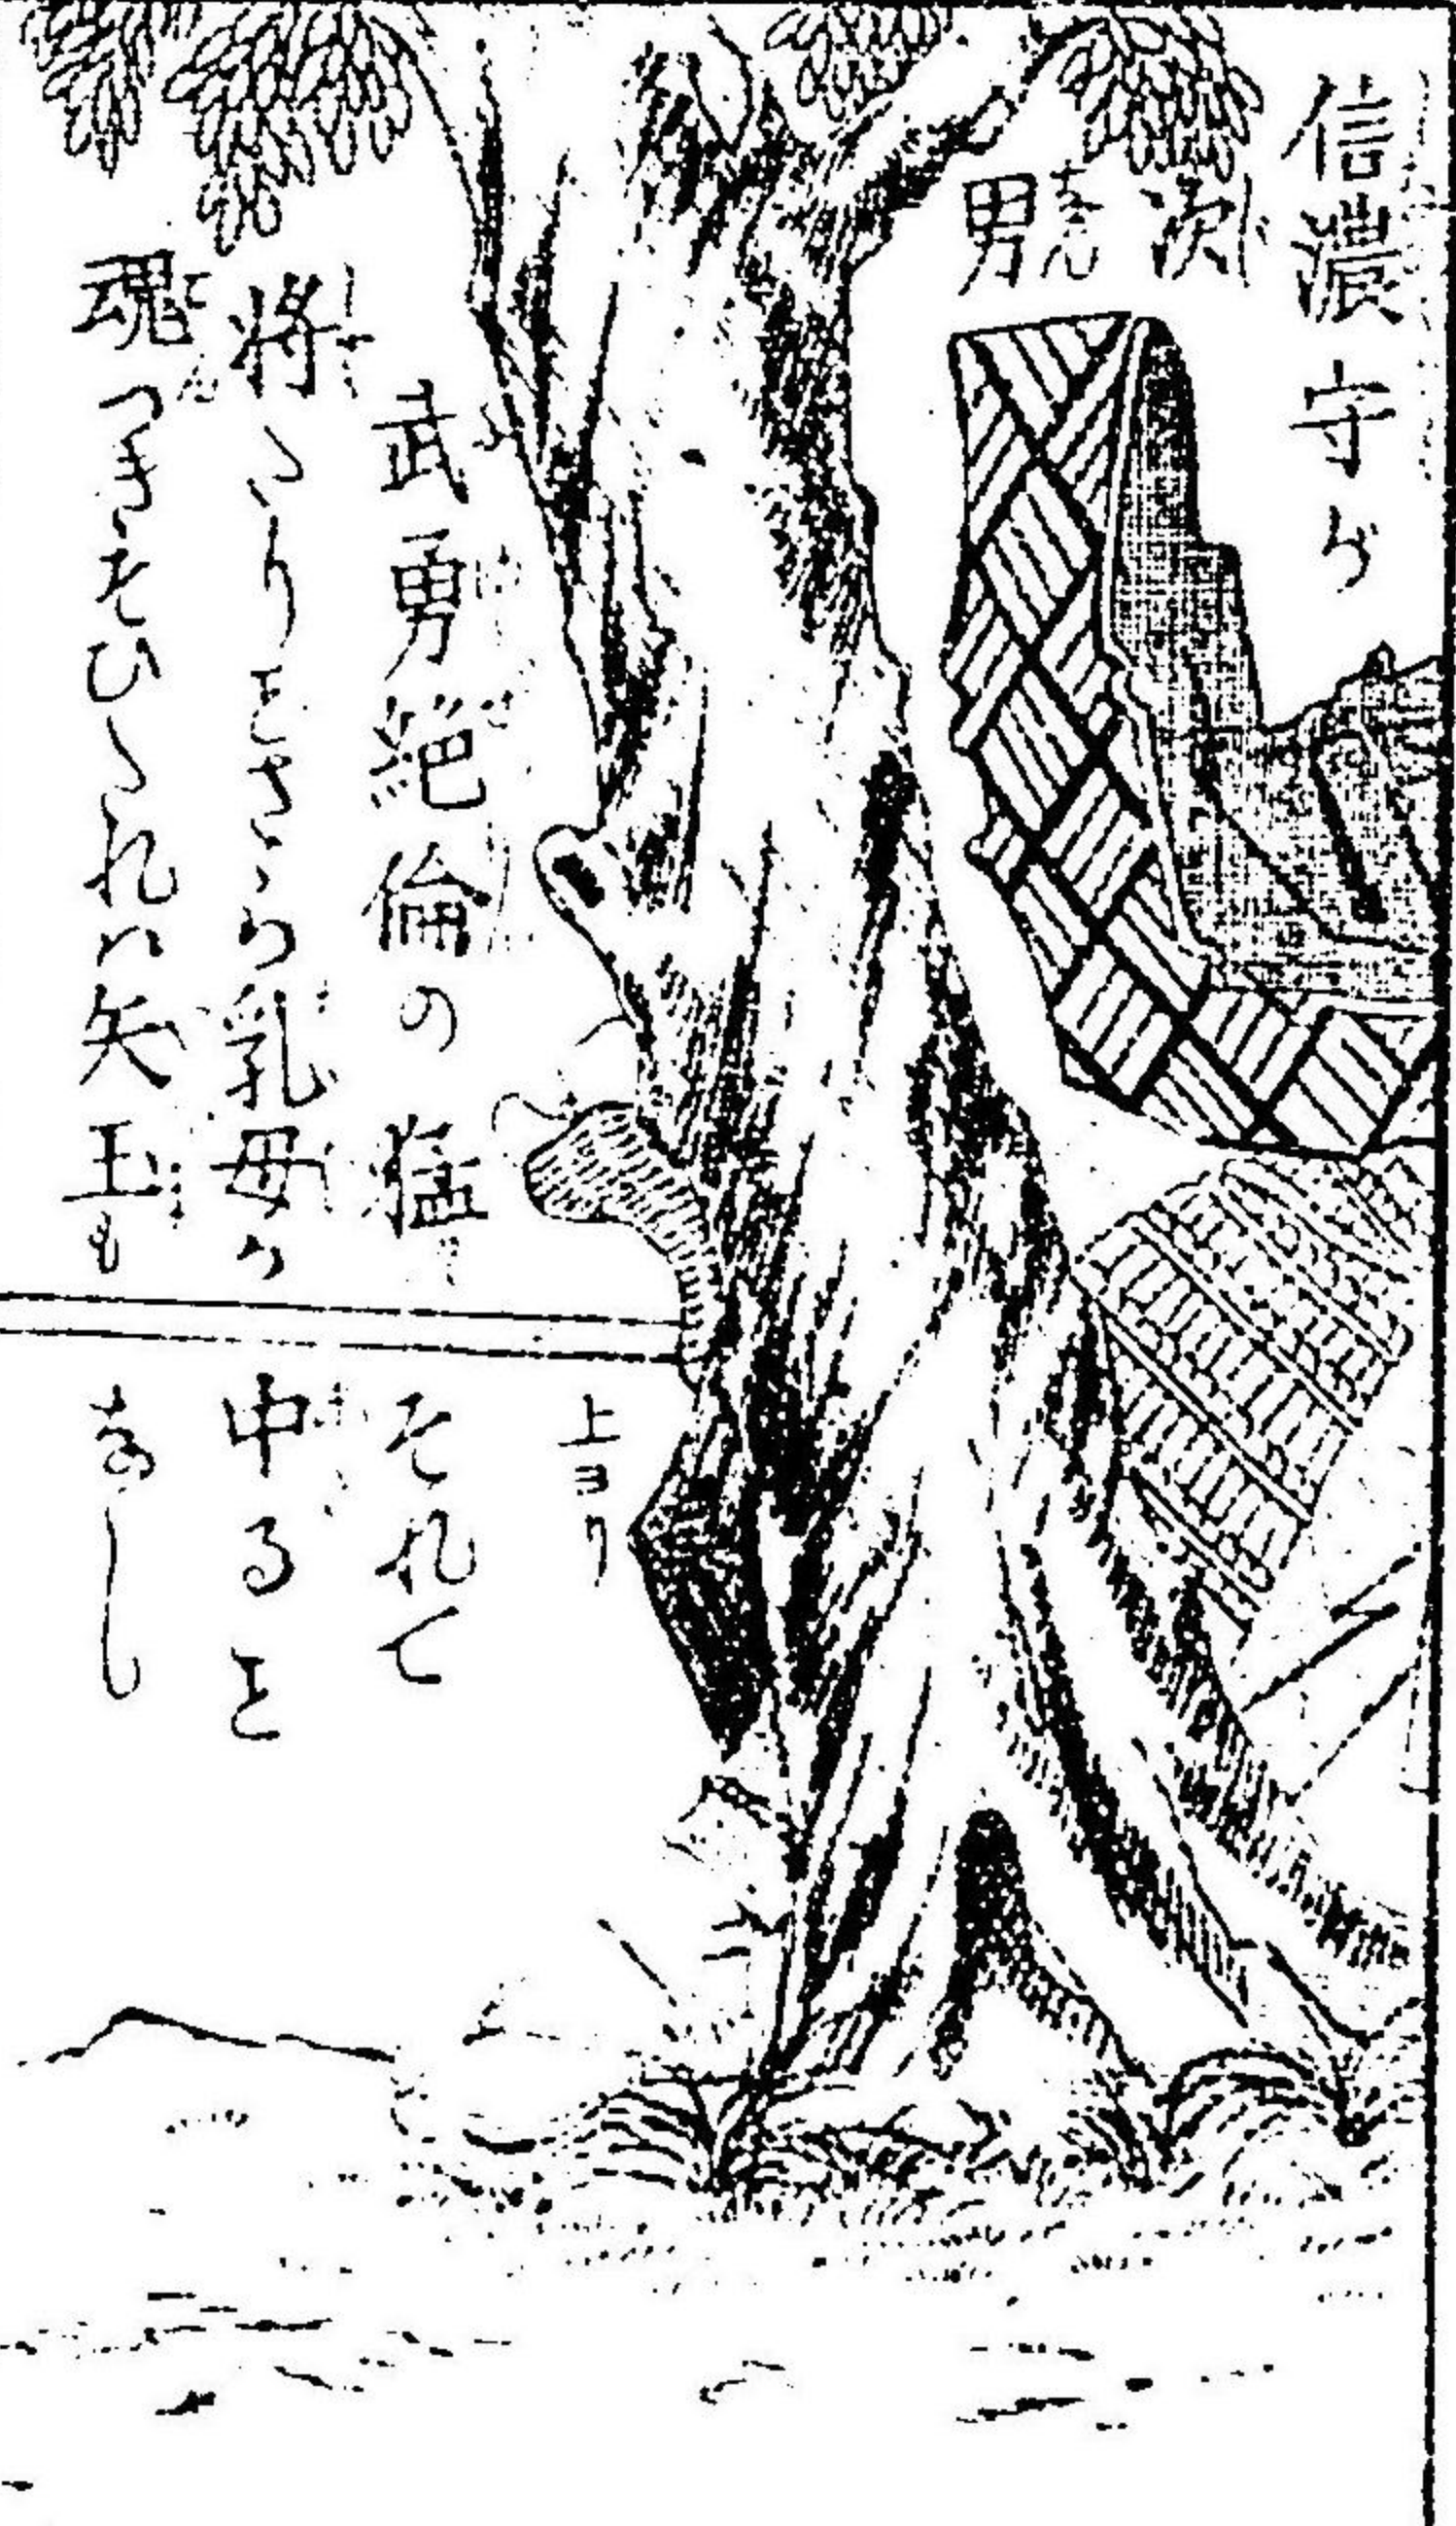 信濃守が
次
男
武勇絶倫の猛
将たりことさら乳母か
魂つきそひたれハ矢玉も
上ヨリ
それて
中ること
なし